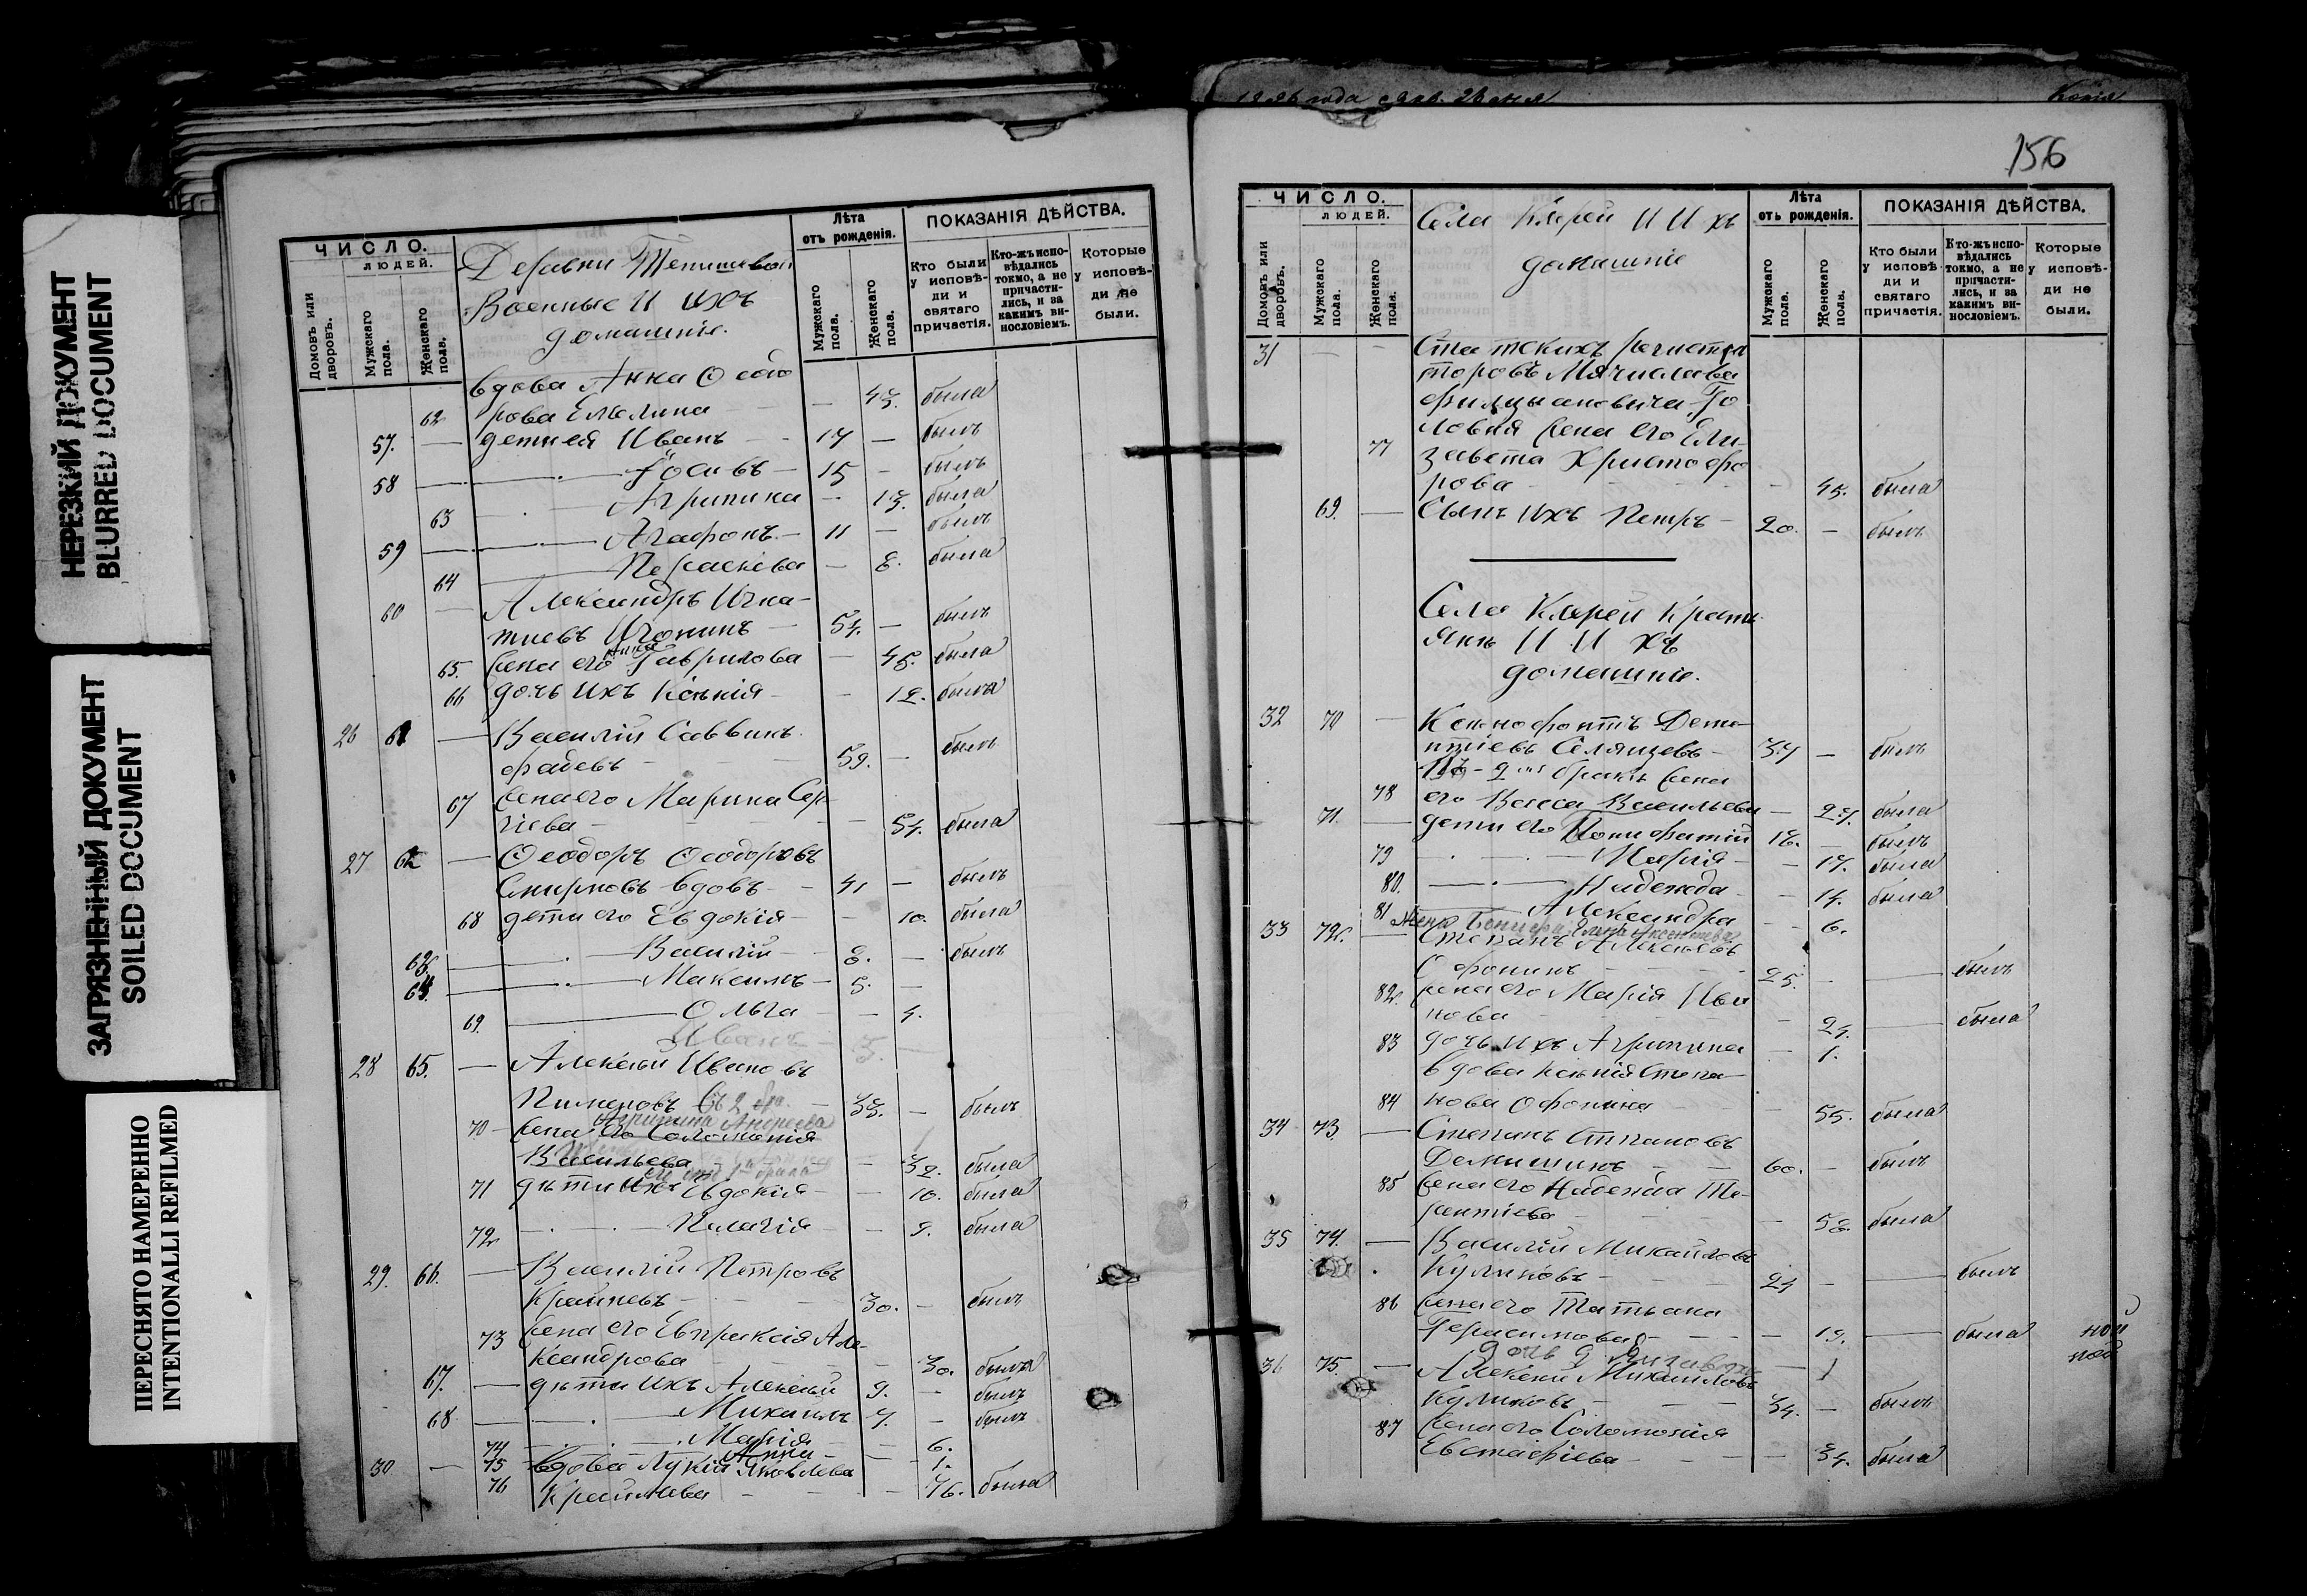 НЕРЕЗКИЙ ДОКУМЕНТ
BLURRED DOCUMENT
ЗАГРЯЗНЕННЫЙ ДОКУМЕНТ
SOILED DOCUMENT
ПЕРЕСНЯТО НАМЕРЕННО
INTENTIONALLI REFILMED
ЧИСЛО.
ЛЮДЕЙ.
Домовъ или дворовъ.
Мужскаго пола.
Женскаго пола.
Деревни
Военные и ихъ
домашніе.
Лѣта
отъ рожденія.
Мужскаго пола.
Женскаго пола.
ПОКАЗАНІЯ ДѢЙСТВА.
Кто были у исповѣди и святаго причастія.
Кто-жъ исповѣдались токмо, а не причастились, и за какимъ винословіемъ.
Которые у исповѣди не были.
вдова Анна Ѳеодо
62 рова — 43. была
57. — детиея Иванъ 17 — былъ
58 — Іосивъ 15 — былъ
63 Агрипина — 13. была
59 — Агафонъ 11 — былъ
64 Параскева — 8. была
60 — Александръ Игна-
тиевъ 54. — былъ
65. жена его Анна Гаврилова — 48. была
66 дочь ихъ Ксенія — 12. была
26 61 — Василій Саввинъ
59. — былъ
67 жена его Марина Сер-
гіева — 54. была
27 62 — Ѳеодоръ Ѳеодоровъ
Смирновъ вдовъ 41 — былъ
68 дети его Евдокія — 10. была
63. Василій 8. — былъ
64. Максимъ 5. —
69. Ольга — 4.
Иванъ 3. —
28 65. — Алексѣй Ивановъ
Пимановъ 33. — былъ
Агрипина Андреева
70 жена его Соломонія
Васильева — 32. была
71 дѣти ихъ Евдокія — 10. была
72 Пелагія — 9. была
29. 66. — Василій Петровъ
Крайневъ 30. — былъ
73 жена его Евпраксія Але-
ксандрова — 30. была
67. — дѣти ихъ Алексѣй 9. — былъ
68 — Михаилъ 7. — былъ
74 Марія — 6.
75 Анна — 1.
30 — вдова Лукія Яковлева
76 Крайнева — 76. была
156
ЧИСЛО.
ЛЮДЕЙ.
Домовъ или дворовъ.
Мужскаго пола.
Женскаго пола.
Села И Ихъ
домашніе
Лѣта
отъ рожденія.
Мужскаго пола.
Женскаго пола.
ПОКАЗАНІЯ ДѢЙСТВА.
Кто были у исповѣди и святаго причастія.
Кто-жъ исповѣдались токмо, а не причастились, и за какимъ винословіемъ.
Которые у исповѣди не были.
31 — —
жена его Ели-
77 завета Христофо
рова — 45. была
69. — Сынъ ихъ Петръ 20. — былъ
Села Крестъ
янѣ И Ихъ
домашніе.
32 70 — Ксенофонтъ
37 — былъ
2мъ бракѣ жена
78 его Васса Васильева — 27. была
71. — дети его Вонифатій 18. — былъ
79 Марія — 17. была
80. Надежда — 14. была
81 Александра — 6.
33 72. — Степанъ Алексѣевъ
Офонинъ 25. — былъ
82. жена его Марія Ива
нова — 24. была
83 дочь ихъ Агрипина — 1.
вдова Ксенія Степа-
84 нова Офонина — 55. была
34 73. — Степанъ Степановъ
60. — былъ
85 жена его Надежда Те-
рентіева — 58. была
35 74. — Василій Михайловъ
Куликовъ 24 — былъ
86 жена его Татьяна
Герасимова — 19. была
36 75. — Алексѣй Михаиловъ
Куликовъ 34. — былъ
87 жена его Соломонія
Евстафіева — 34. была